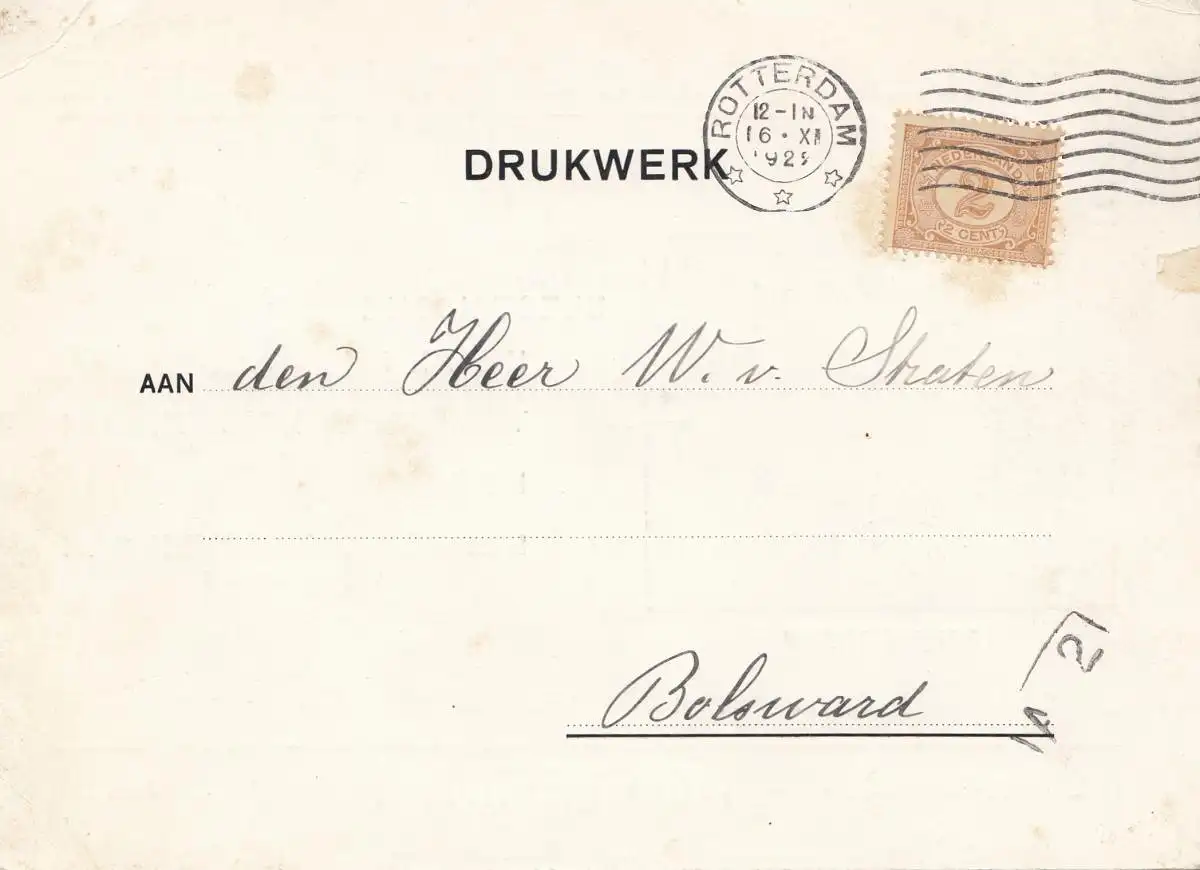 DRUKWERK
ROTTERDAM
12-1N
16 · XI
NEDERLAND
2
2 CENT
AAN den Heer W. v. Straten
Bolsward
2